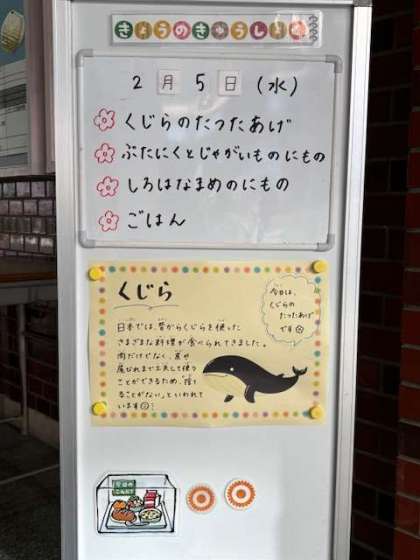 きょうのきゅうしょく
2月5日(水)
くじらのたつたあげ
ぶたにくとじゃがいものにもの
しろはなまめのにもの
ごはん
くじら
日本では、昔からくじらを使った
さまざまな料理が食べられてきました。
肉だけでなく、皮や
尾びれまで工夫して使う
ことができるため、"捨て
ることがない"といわれて
います
今日は、
くじらの
たつたあげ
です